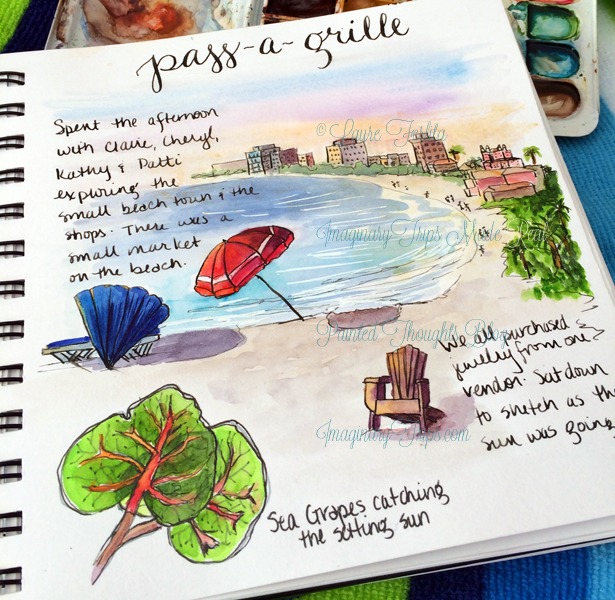 pass-a-grille
Spent the afternoon
with Claire, Cheryl,
Kathy & Patti
exploring the
small beach town & the
shops. There was a
small market
on the beach.
© Laure Ferlita
Imaginary Trips Made Real
Painted Thoughts Blog
We all purchased
jewelry from one
vendor. Sat down
to sketch as the
sun was going
Imaginary-Trips.com
Sea Grapes catching
the setting sun